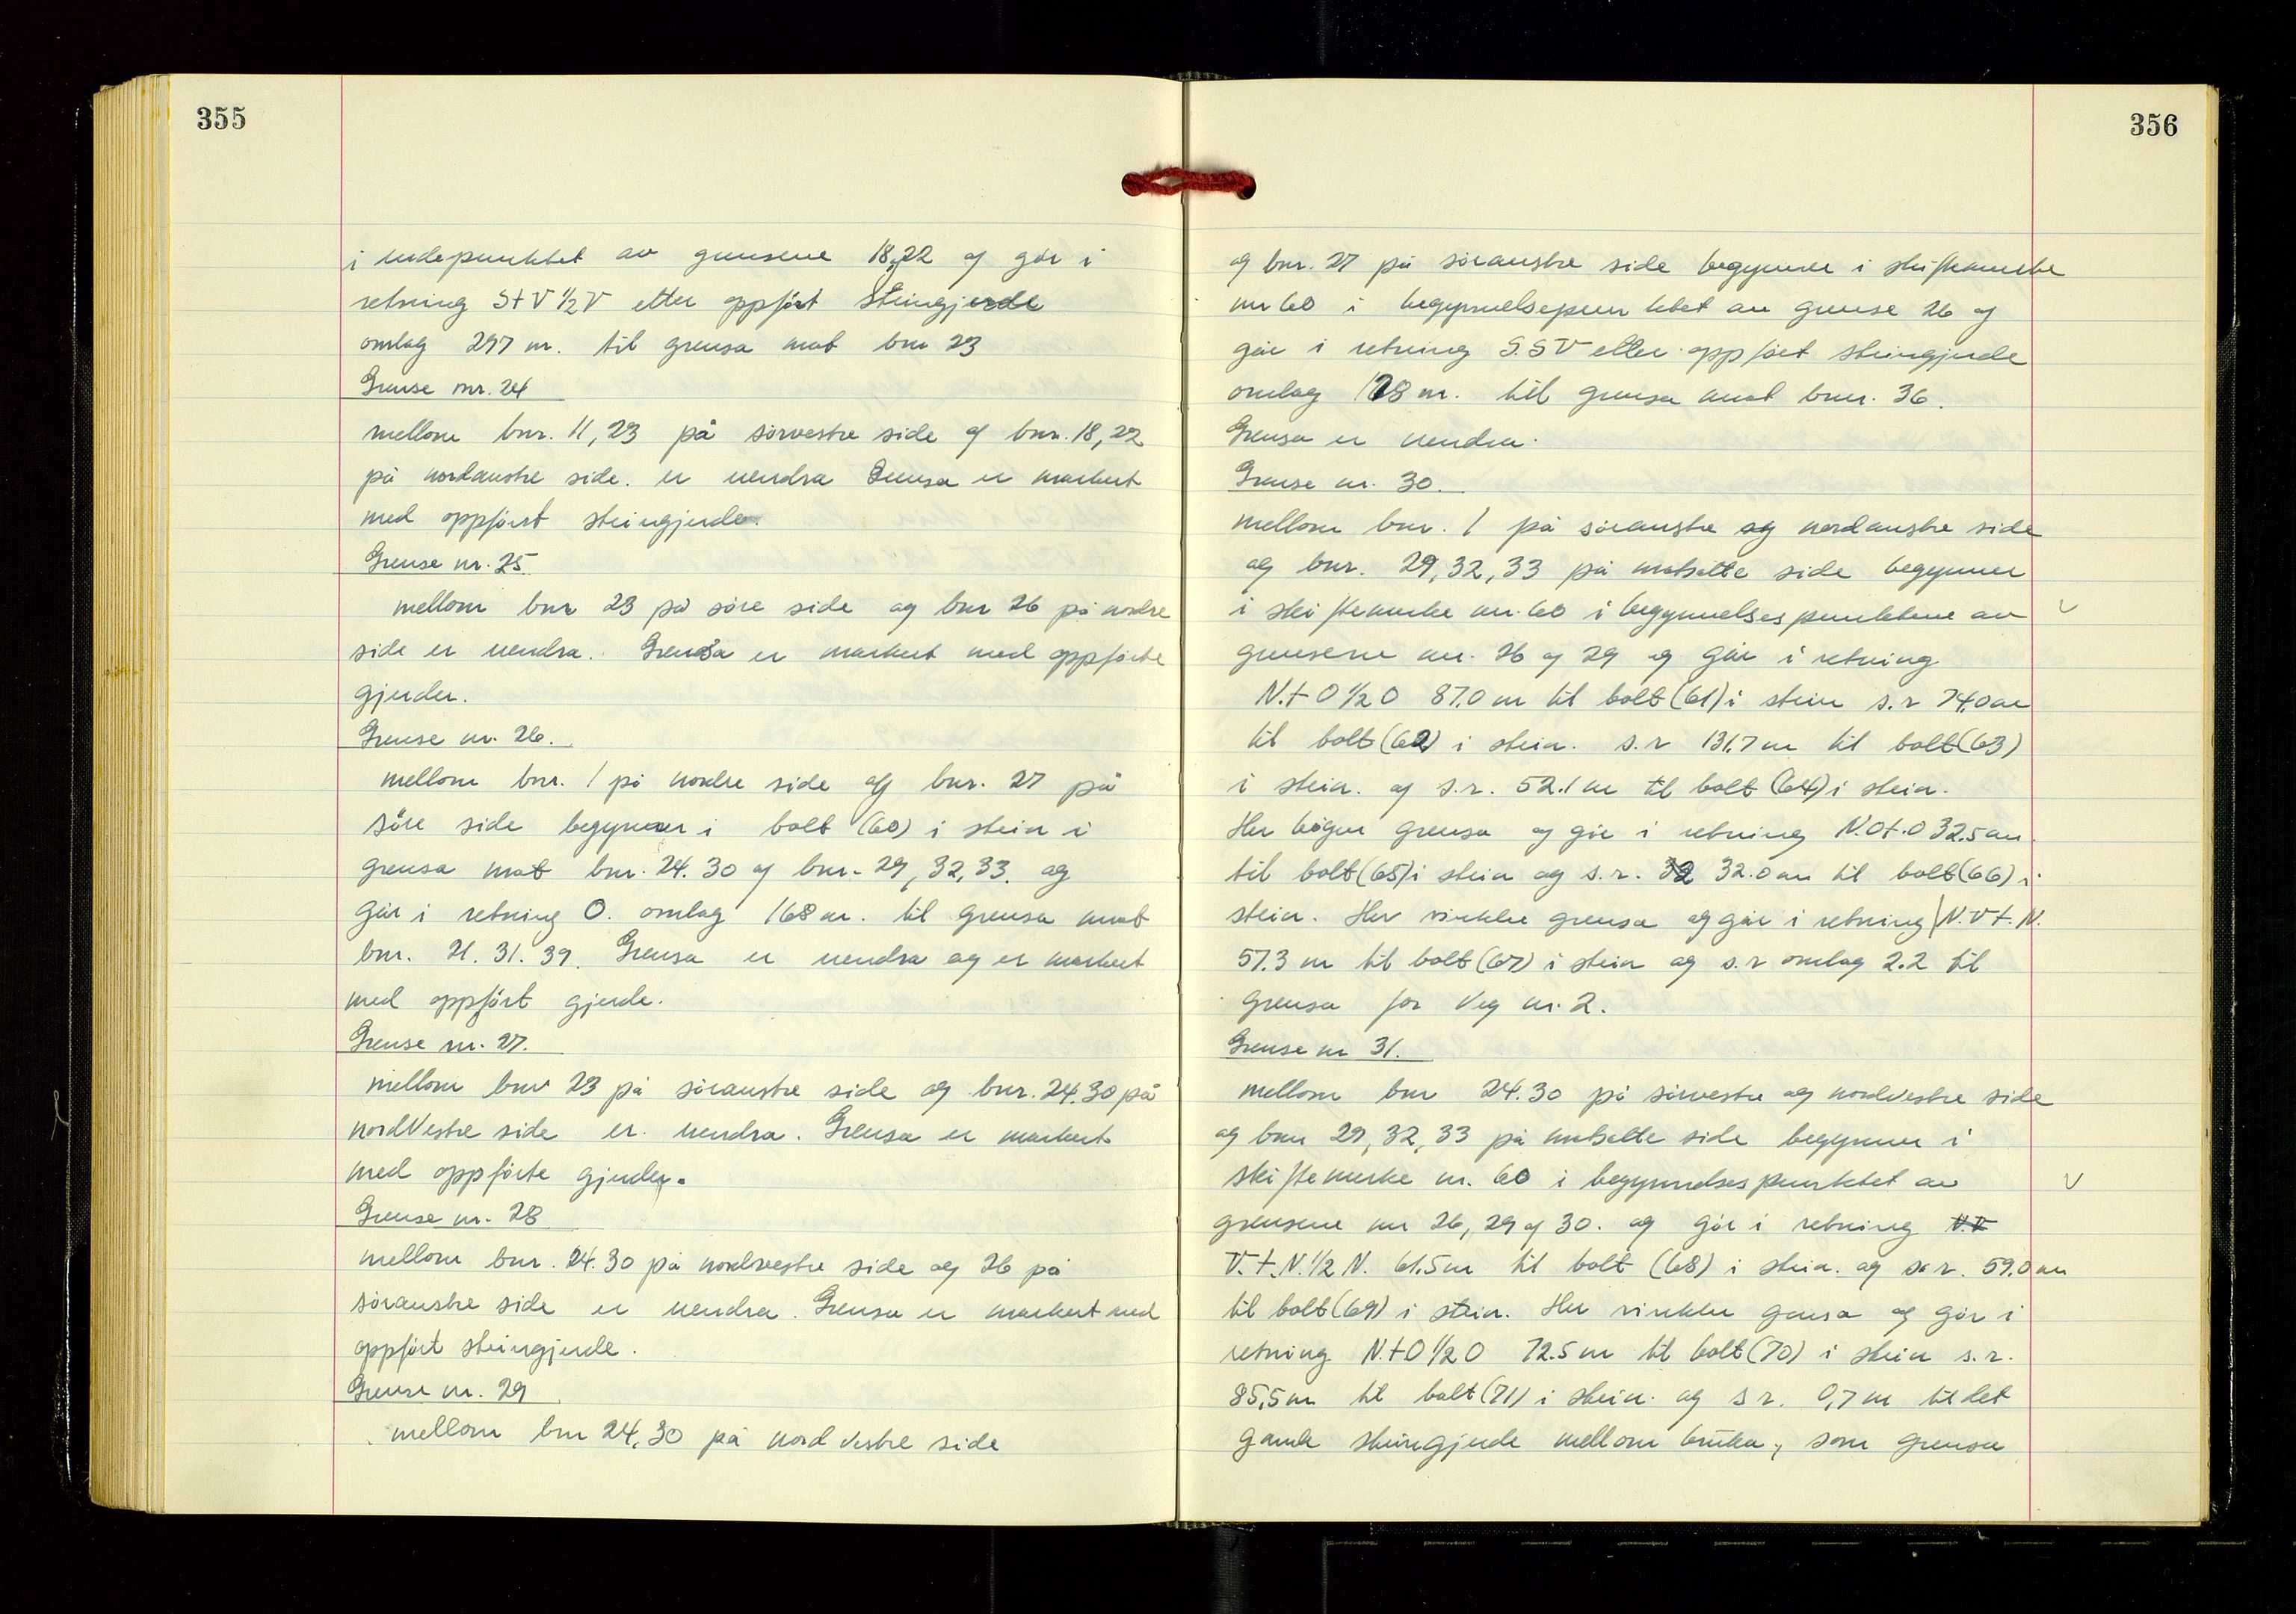 355
i endepunktet av grensene 18,22 og går i
retning StV 1/2 V etter oppført steingjerde
omlag 297 m. til grensa mot bnr 23
Grense nr. 24
mellom bnr. 11, 23 på sørvestre side og bnr. 18, 22
på nordaustre side. er uendra Grensa er markert
med oppført steingjerde.
Grense nr. 25
mellom bnr 23 på søre side og bnr 26 på nordre
side er uendra. Grensa er markert med oppførte
gjerder.
Grense nr. 26.
mellom bnr. 1 på nordre side og bnr. 27 på
søre side begynner i bolt (60) i stein i
grensa mot bnr. 24. 30 og bnr. 29, 32, 33. og
går i retning O. omlag 168 m. til grensa mot
bnr. 21. 31. 39. Grensa er uendra og er markert
med oppført gjerde.
Grense nr. 27.
mellom bnr 23 på søraustre side og bnr. 24.30 på
nordvestre side er uendra. Grensa er markert
med oppførte gjerder.
Grense nr. 28
mellom bnr. 24. 30 på nordvestre side og 26 på
søraustre side er uendra. Grensa er markert med
oppført steingjerde.
Grense nr. 29
mellom bnr 24, 30 på nordvestre side
356
og bnr. 27 på søraustre side begynner i skiftemerke
nr 60 i begynnelsepunktet av grense 26 og
går i retning S.SV etter oppført steingjerde
omlag 128 m. til grensa mot bnr. 36.
Grensa er uendra.
Grense nr. 30.
mellom bnr. 1 på søraustre og nordaustre side
og bnr. 29, 32, 33 på motsatte side begynner
i skiftemerke nr. 60 i begynnelsespunktene av
grensene nr. 26 og 29 og går i retning
N.t O 1/2 O 87.0 m til bolt (61) i stein s.r 74.0 m
til bolt (62) i stein. s.r 131.7 m til bolt (63)
i stein. og s.r. 52.1 m til bolt (64) i stein.
Her bøyer grensa og går i retning N.O t.O 32.5 m
til bolt (65) i stein og s.r. 32 32.0 m til bolt (66) i
stein. Her vinkler grensa og går i retning N.V t. N.
57.3 m til bolt (67) i stein og s.r omlag 2.2 til
grensa for Veg nr. 2.
Grense nr 31.
mellom bnr 24.30 på sørvestre og nordvestre side
og bnr 29, 32, 33 på motsatte side begynner i
skiftemerke nr. 60 i begynnelsespunktet av
grensene nr 26, 29 og 30. og går i retning N.V
V. t. N. 1/2 N. 61.5 m til bolt (68) i stein. og s.r. 59.0 m
til bolt (69) i stein. Her vinkler grensa og går i
retning N.t O 1/2 O 72.5 m til bolt (70) i stein s.r.
85,5 m til bolt (71) i stein. og s r. 0,7 m til det
gamle steingjerde mellom bruka, som grensa